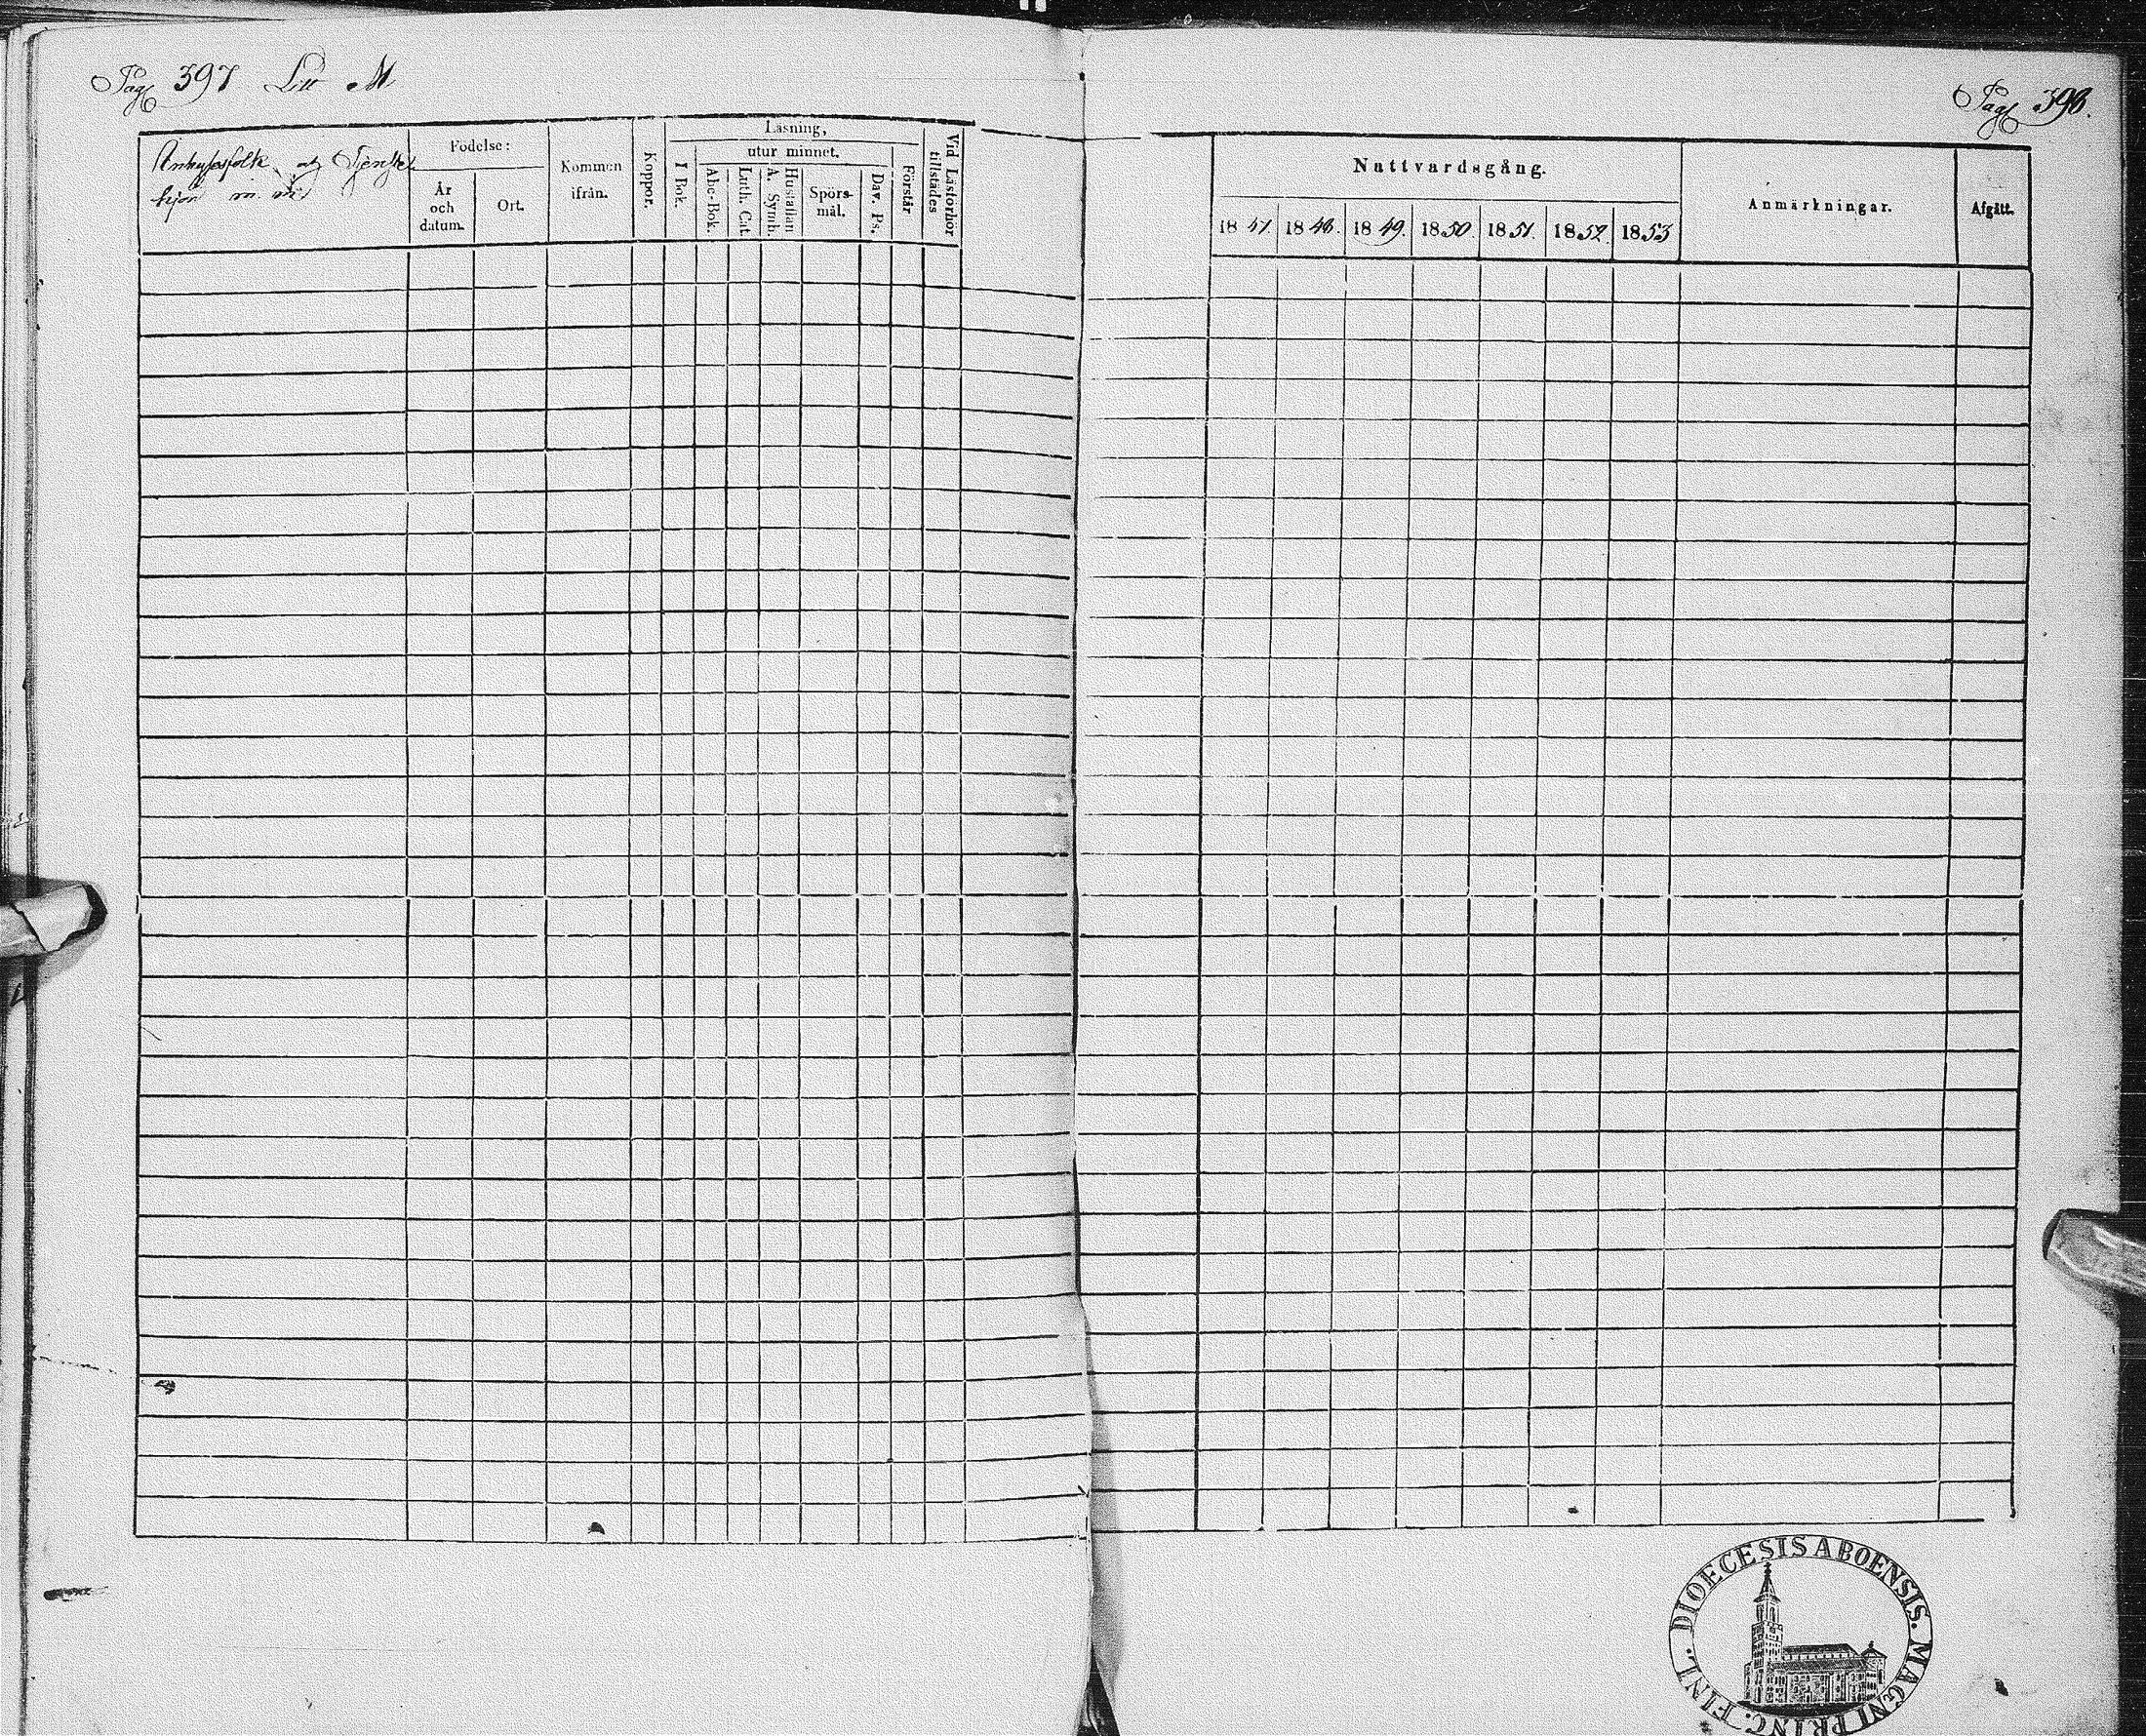 Pag 397 Litt M.
Pag 398.
och Tjenste
hjon m. m.
Födelse:
År och datum.
Ort.
Kommen ifrån.
Koppor.
Läsning,
utur minnet.
I Bok.
Abc-Bok.
Luth. Cat.
Hustaflan A. Symb.
Spörs-
mål.
Dav. Ps.
Förstår
Vid Läsförhör tillstädes
Nattvardsgång.
1847. 1848. 1849. 1850. 1851. 1852. 1853
Anmärkningar.
Afgått.
DIOECESIS ABOENSIS. MAGNI PRINC. FINL.